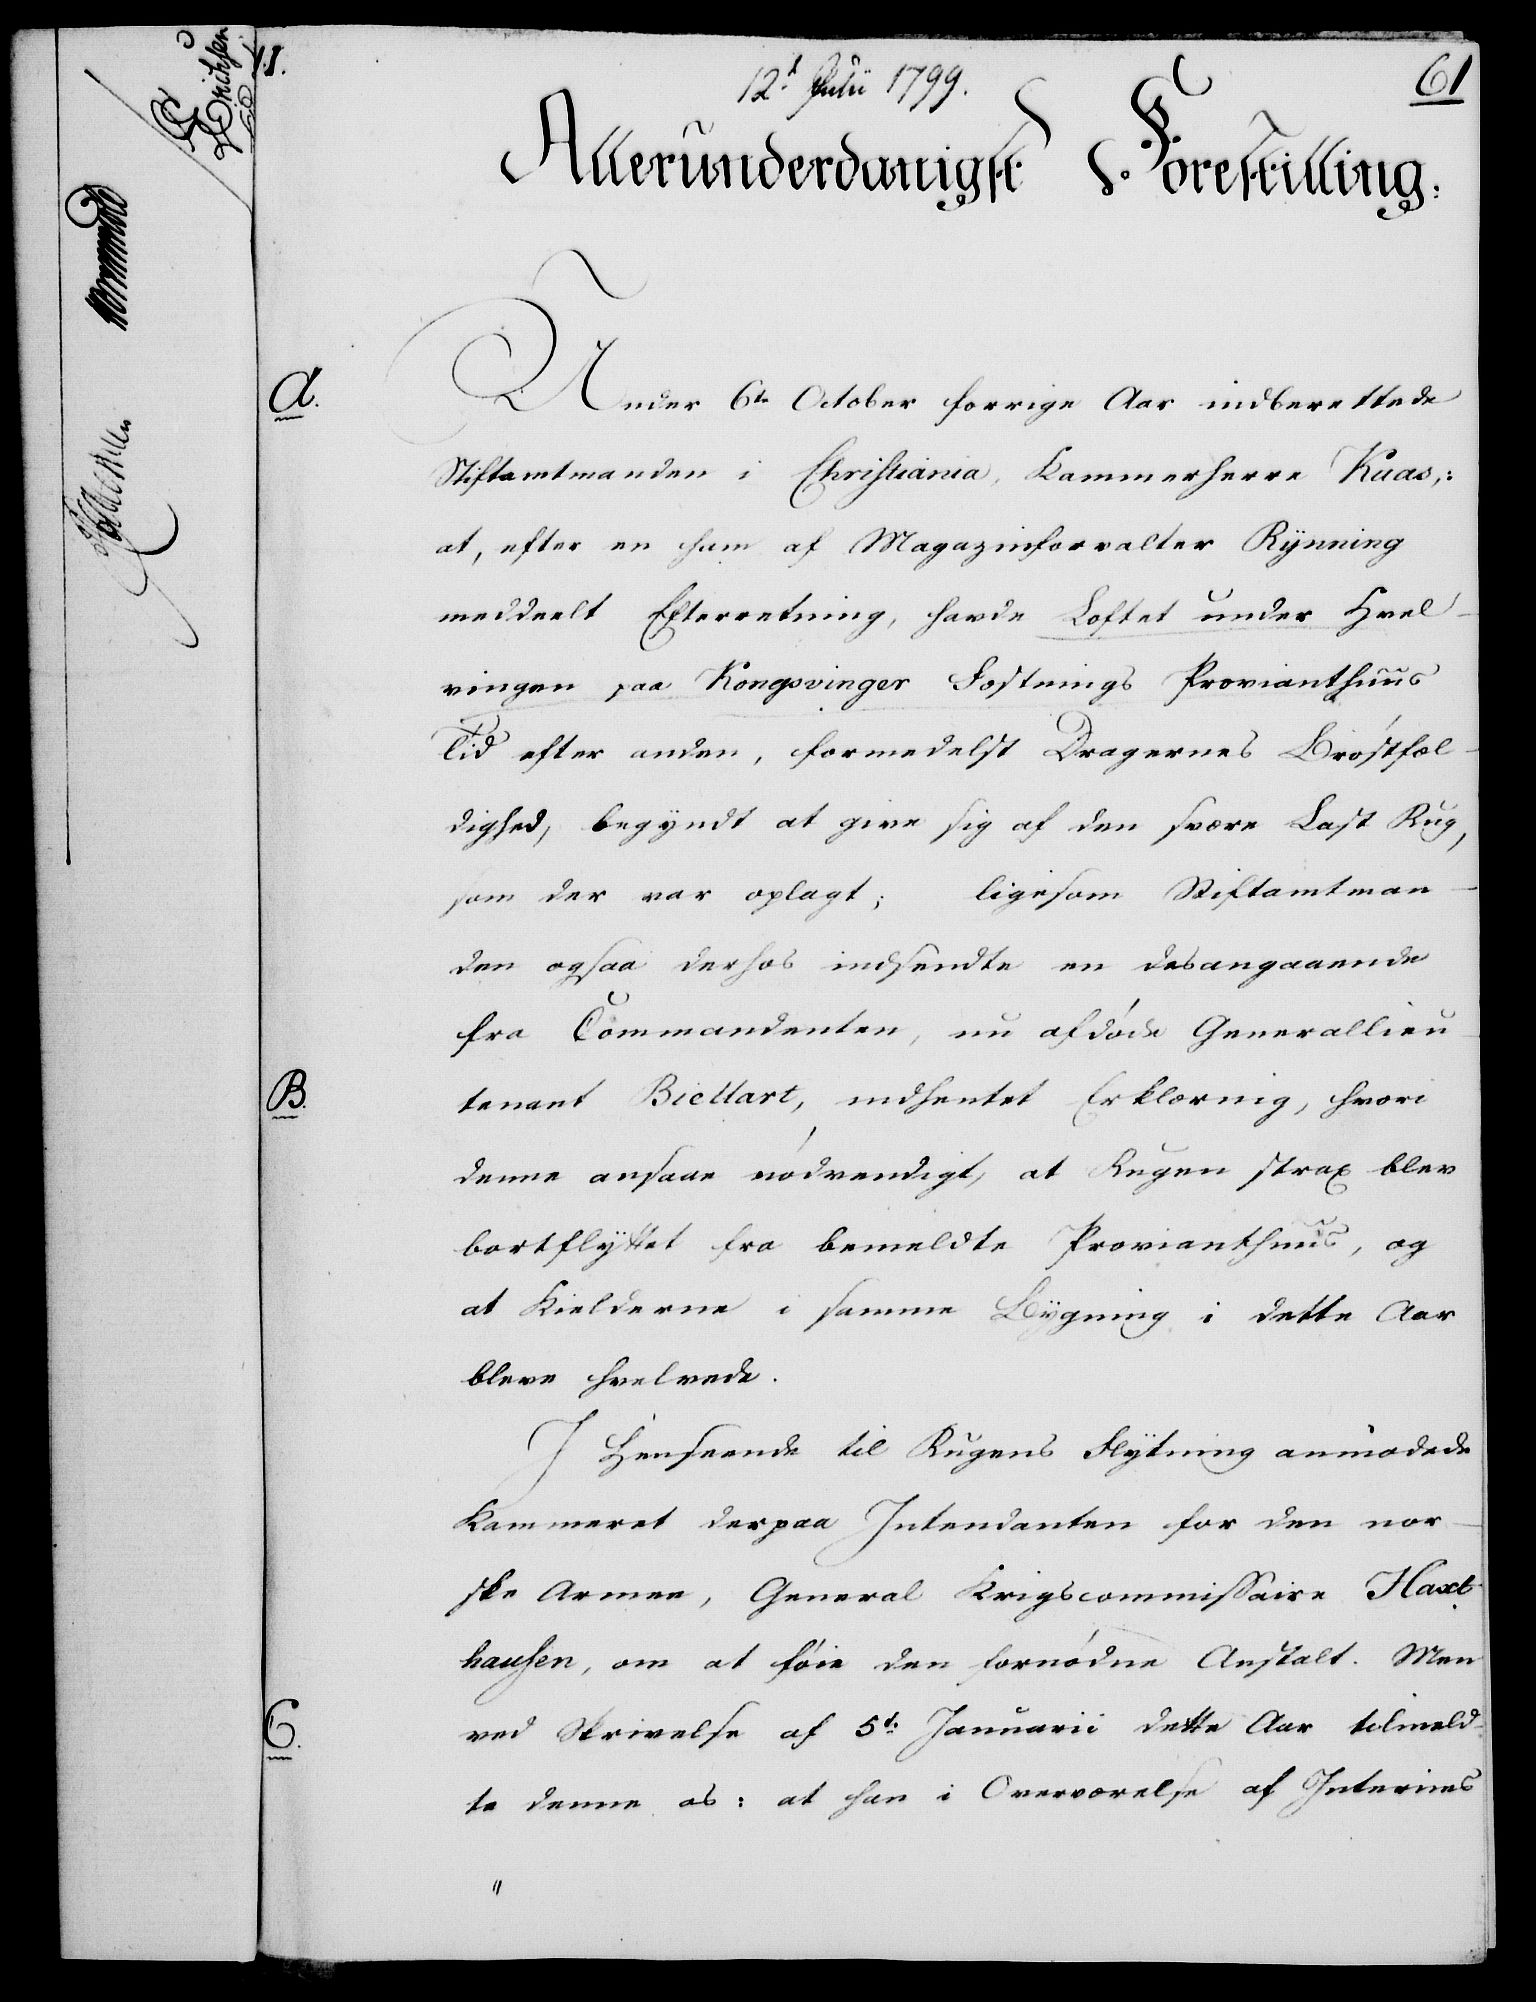 12.t Julii 1799.
61
Allerunderdanigst Forestilling:
A.
Under 6te October forrige Aar indberettede
Stiftamtmanden i Christiania, Kammerherre Kaas,:
at, efter en ham af Magazinforvalter Rÿnning
meddeelt Efterretning, havde Loftet under Hvel-
vingen paa Kongsvinger Fæstnings Provianthuus
Tid efter anden, formedelst Dragernes Bröstfæl-
dighed, begÿndt at give sig af den svære Last Rug,
som der var oplagt; ligesom Stiftamtman-
den ogsaa derhos indsendte en desangaaende
fra Commandenten, nu afdöde Generallieu-
B.
tenant Biellart, indhentet Erklæring, hvori
denne ansaae nödvendigt, at Rugen strax blev
bortflÿttet fra bemeldte Provianthuus, og
at Kielderne i samme Bÿgning i dette Aar
bleve hvelvede.
I Henseende til Rugens Flÿtning anmodede
Kammeret derpaa Intendanten for den nor-
ske Armee, General Krigscommissaire Haxt-
hausen, om at föie den fornödne Anstalt. Men
C.
ved Skrivelse af 5t: Januarii dette Aar tilmeld-
te denne os: at han i Overværelse af Interims
"